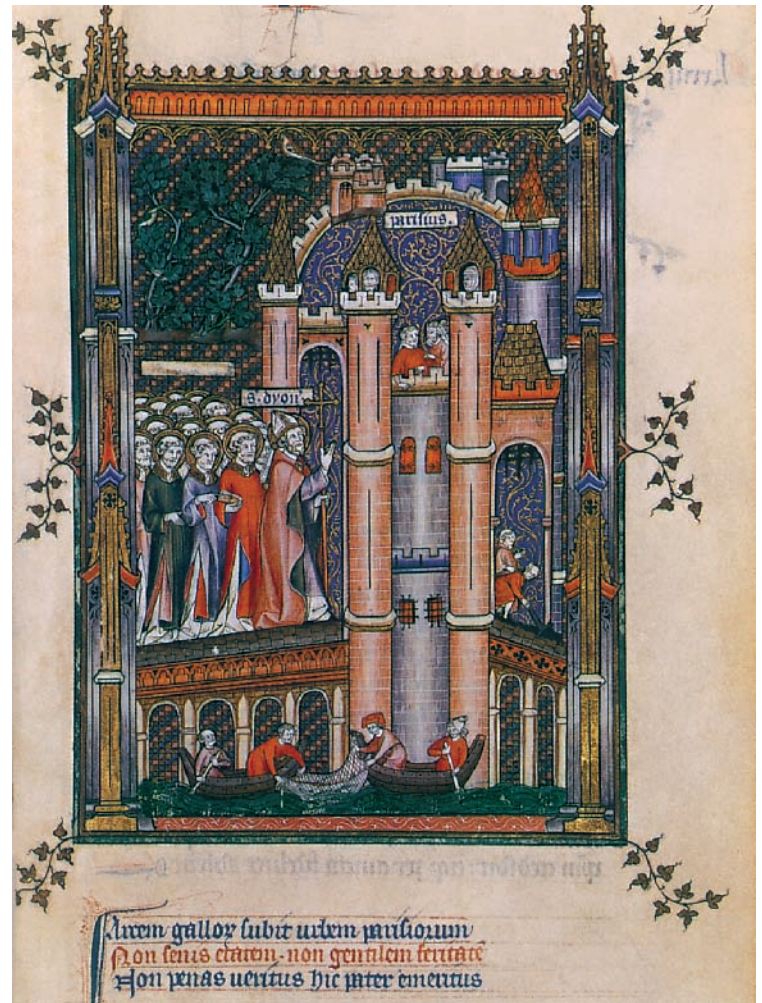 parisius.
s. dyon'
Arcem galloꝝ subit urbem parisiorum
Non senis etatem · non gentilem feritatē
Non penas ueritus hic pater emeritus